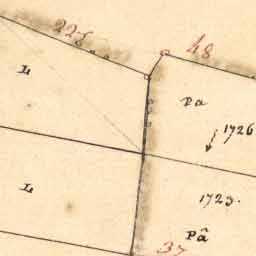 48
L
Pa
1726
L
1723.
Pâ
37